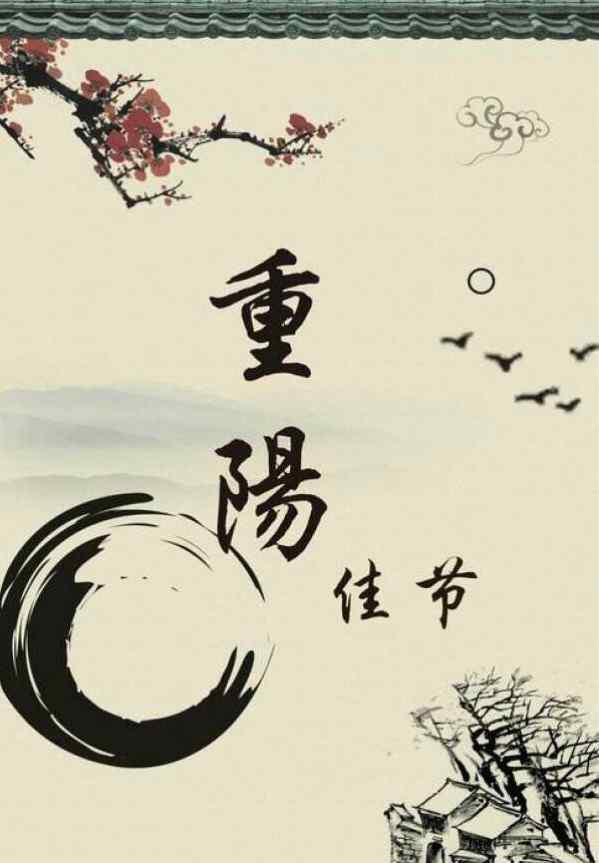 重陽
佳节